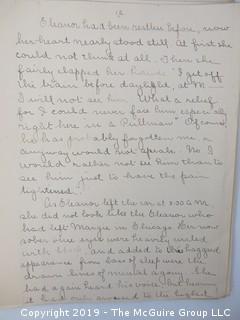 Eleanor had been restless before, now
her heart nearly stood still. At first she
could not think at all. Then she
fairly clapped her hands "I get off
the train before daylight, at M—
I will not see him. What a relief
for I could never face him especially
right here in a Pullman" Of course
he has probably forgotten me, or
anyway would not speak. No I
would rather not see him than to
see him just to have the pain
As Eleanor left the car at 3:00 A.M.
she did not look like the Eleanor who
had left Margie in Chicago. Her now
sober blue eyes were heavily united
with black and added to this haggard
appearance from loss of sleep were the
drawn lines of mental agony. She
had again heard his voice, but hearing
it had only to the highest
Copyright 2019 - The McGuire Group, LLC